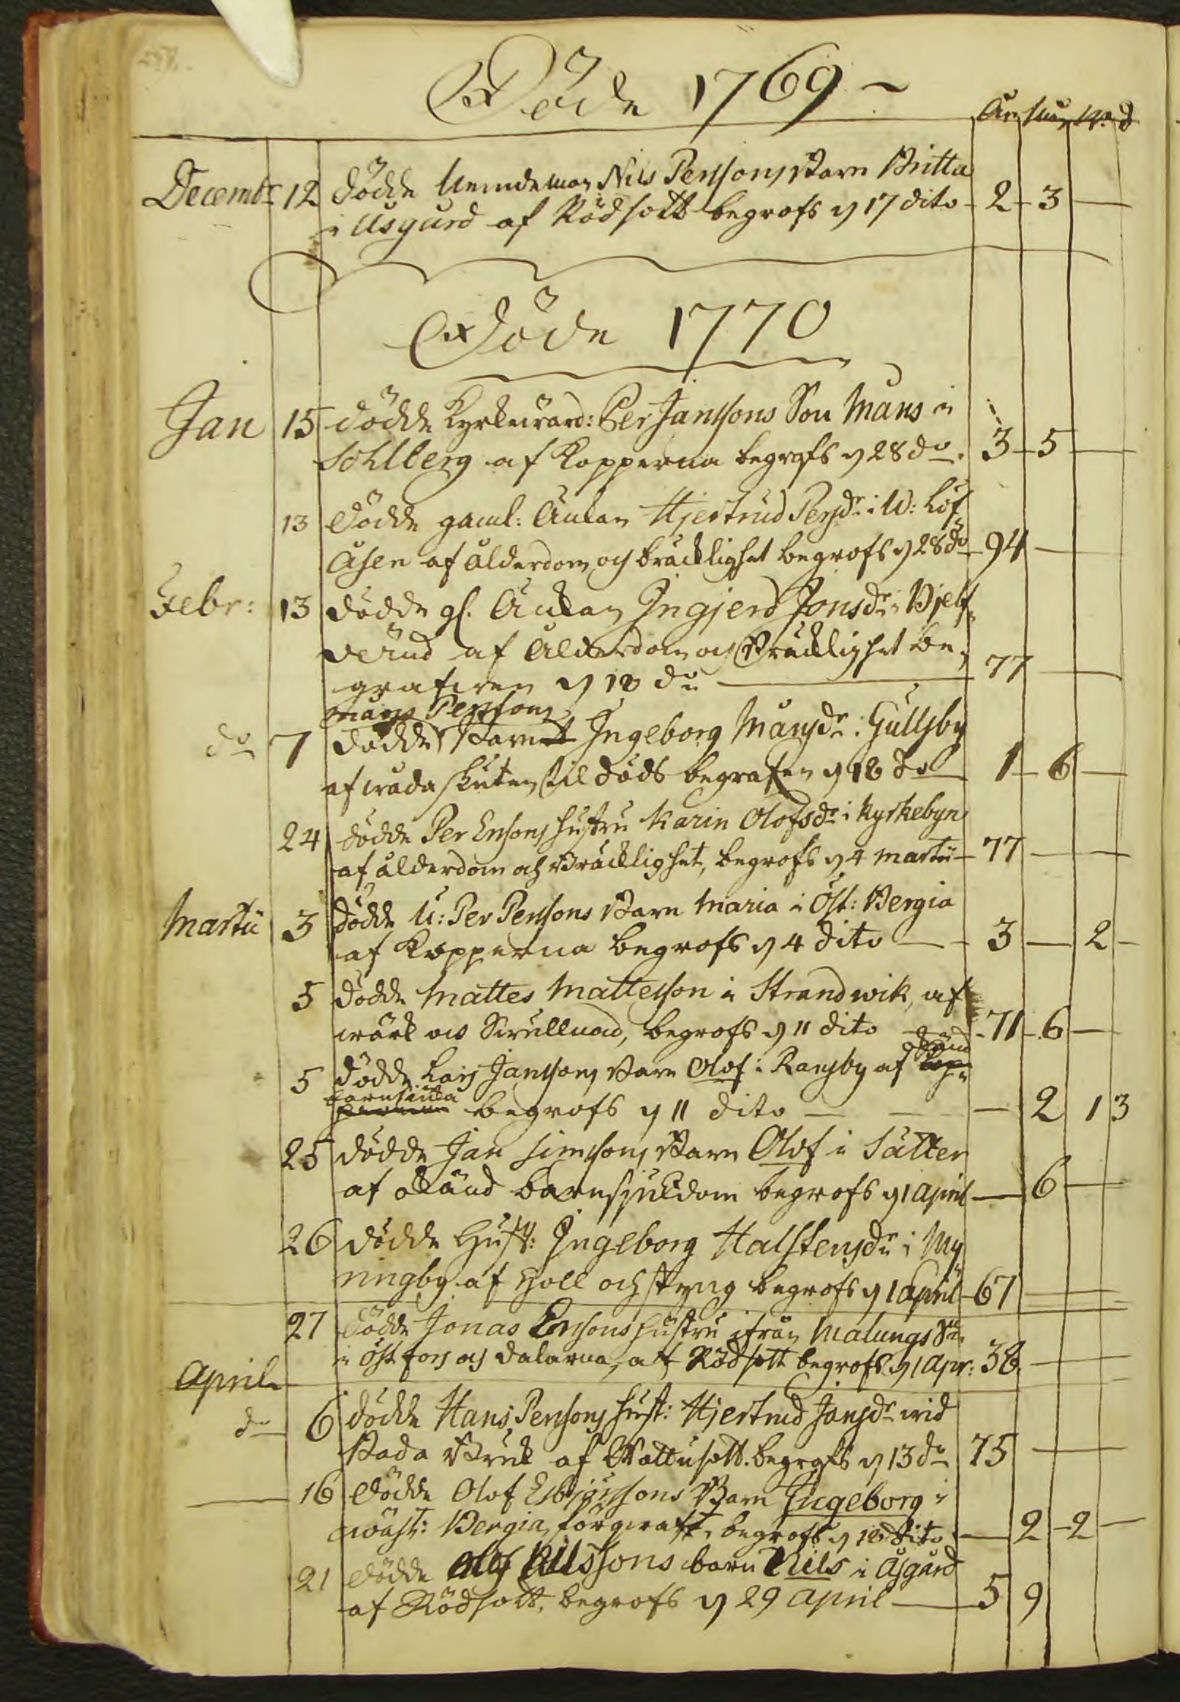 Döde 1769 ~
År
Decemb: 12 dödde Nemdeman Nils Perssons Barn Britta
i Åsgård af Rödsott begrofs d 17 dito 2 3
Döde 1770
Jan 15 dödde Kyrkiovärd: Per Janssons Son Måns i
Sohlberg af Kopperna begrofs d 28 do. 3 5
13 dödde gaml: Änkan Hjertrud Persdr i W: Löf
åsen af ålderdom och bräcklighet begrofs d 28 do 94
Febr: 13 dödde gl. Änkan Ingjerd Jonsdr i Bjelf
verud af Ålderdom och Bräcklighet be-
grafven d 18 do 77
Måns Perssons
do 7 dödde Barnet Ingeborg Månsdr i Gullsby
af wåda skuten til döds begrafen d 18 do 1 6
24 dödde Per Ersons hustru Karin Olofsdr i Kyrkebyn
af ålderdom och Bräcklighet, begrofs d 4 martii 77
Martii 3 dödde U: Per Perssons Barn Maria i Öst: Bergia
af Kopperna begrofs d 4 dito 3 2
5 dödde Mattes Mattesson i Strandwik, af
wärk och begrofs d 11 dito 71 6
okänd
5 dödde Lars Janssons Barn Olof i Ransby af Kop-
barnsiuka
perna begrofs d 11 dito 2 13
25 dödde Jan Simssons Barn Olof i Sätter
af okänd barnsjukdom begrofs d 1 April 6
26 dödde Hust: Ingeborg Halstensdr i My
ringby af Håll och styng begrofs d 1 April 67
27 dödde Jonas Ersons hustru ifrån Malungs Sn
i Östfors och Dalarna, af Rödsott begrofs d 1 Apr: 38
April
do 6 dödde Hans Perssons hust: Hjertrud Jansdr wid
Bada Bruk af Wattusott. begrofs d 13 do 75
16 dödde Olof Esbjörssons Barn Ingeborg i
wäst: Bergia, begrofs d 18 dito 2 2
21 dödde Olof Nilssons barn Nils i Åsgård
af Rödsott, begrofs d 29 April 5 9